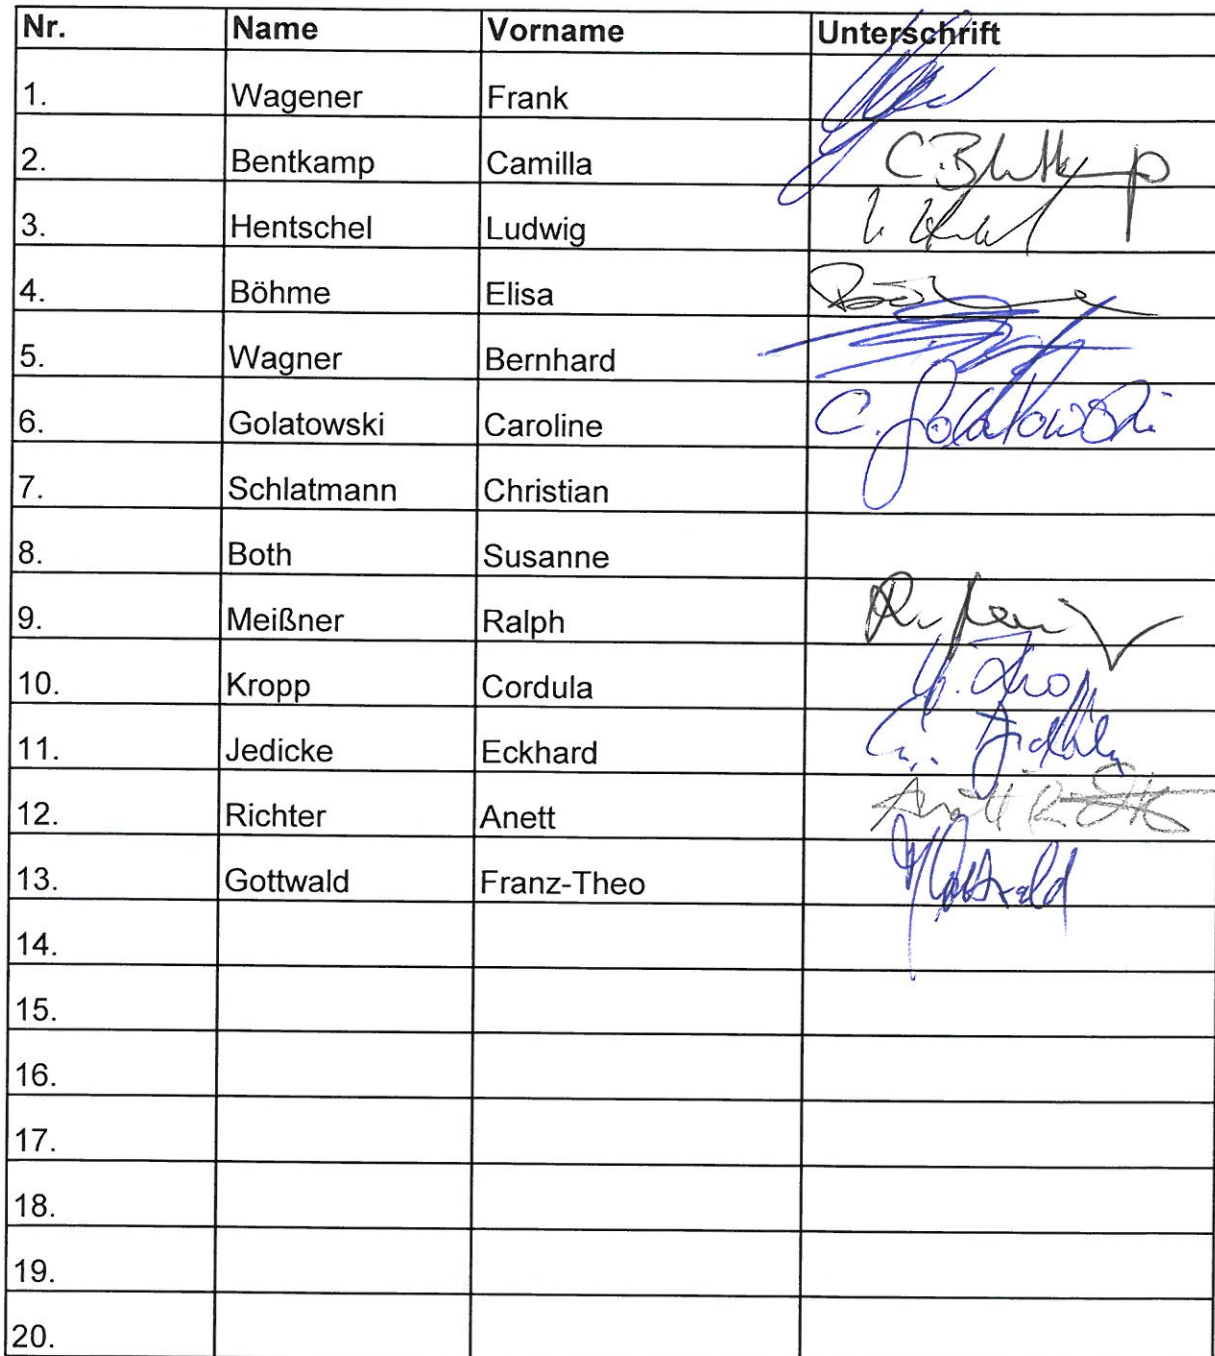 Nr. Name Vorname Unterschrift
1. Wagener Frank
2. Bentkamp Camilla C. Bentkamp
3. Hentschel Ludwig
4. Böhme Elisa
5. Wagner Bernhard
6. Golatowski Caroline C. Golatowski
7. Schlatmann Christian
8. Both Susanne
9. Meißner Ralph
10. Kropp Cordula
11. Jedicke Eckhard
12. Richter Anett
13. Gottwald Franz-Theo
14.
15.
16.
17.
18.
19.
20.